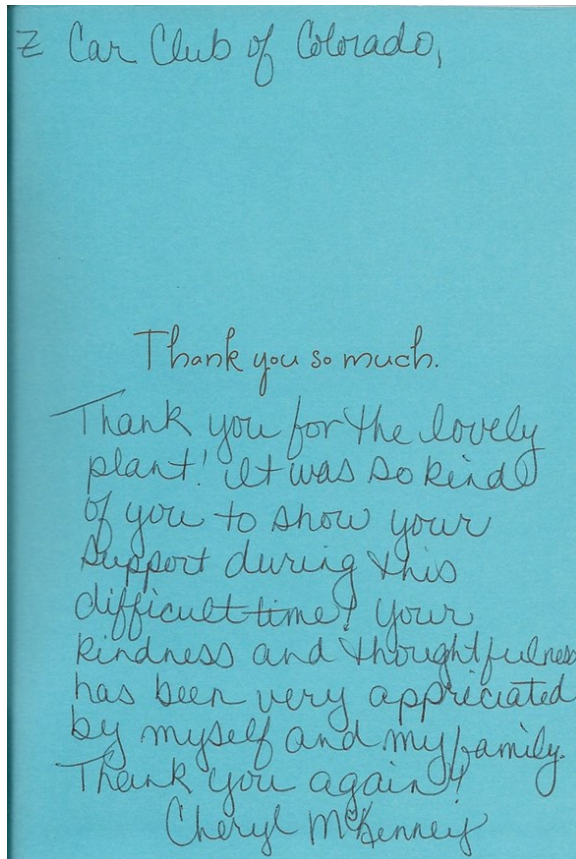 Z Car Club of Colorado,
Thank you so much.
Thank you for the lovely
plant! It was so kind
of you to show your
support during this
difficult time! Your
kindness and thoughtfulness
has been very appriciated
by myself and my family.
Thank you again!
Cheryl McKenney